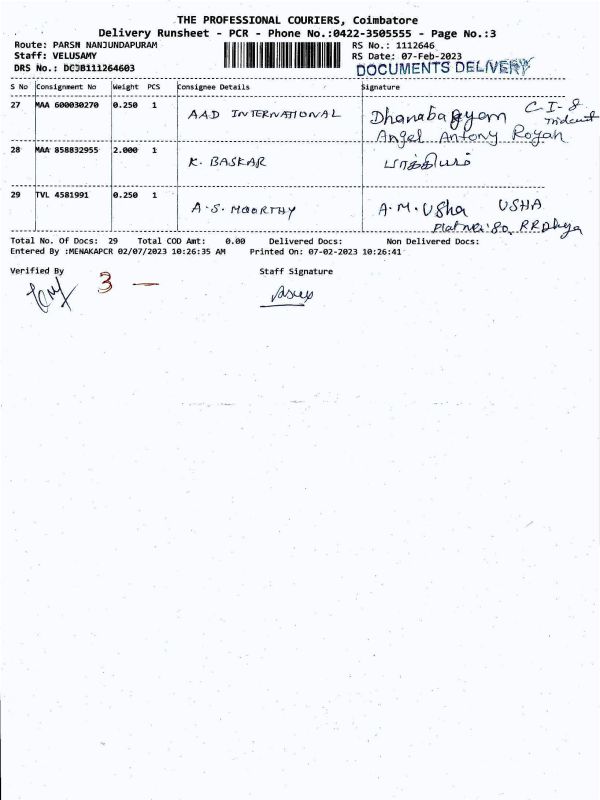 THE PROFESSIONAL COURIERS, Coimbatore
Delivery Runsheet - PCR - Phone No.:0422-3505555 - Page No.:3
Route: PARSN NANJUNDAPURAM RS No.: 1112646
Staff: VELUSAMY RS Date: 07-Feb-2023
DRS No.: DCJB111264603 DOCUMENTS DELIVERY
S No Consignment No Weight PCS Consignee Details Signature
27 MAA 600030270 0.250 1 AAD INTERNATIONAL Dhanabagyam C-I-8
Trident
Angel Antony Royan
28 MAA 858832955 2.000 1 K. BASKAR
29 TVL 4581991 0.250 1 A.S. MOORTHY A.M.Usha USHA
Plat No: 80,
Total No. Of Docs: 29 Total COD Amt: 0.00 Delivered Docs: Non Delivered Docs:
Entered By :MENAKAPCR 02/07/2023 10:26:35 AM Printed On: 07-02-2023 10:26:41
Verified By Staff Signature
3 —